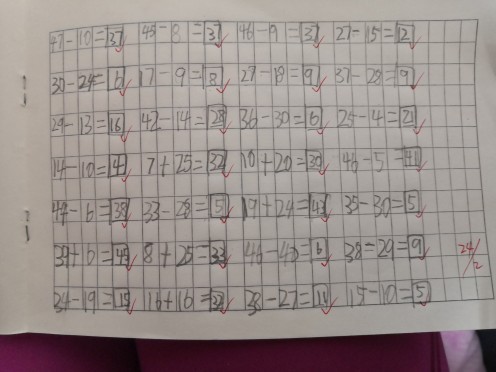 47-10=37 45-8=37 46-9=37 27-15=12
30-24=6 17-9=8 27-18=9 37-28=9
29-13=16 42-14=28 36-30=6 25-4=21
14-10=4 7+25=32 10+20=30 46-5=41
44-6=38 33-28=5 19+24=43 35-30=5
39+6=45 8+25=33 46-40=6 38-29=9
34-19=15 16+16=32 38-27=11 15-10=5
24/2